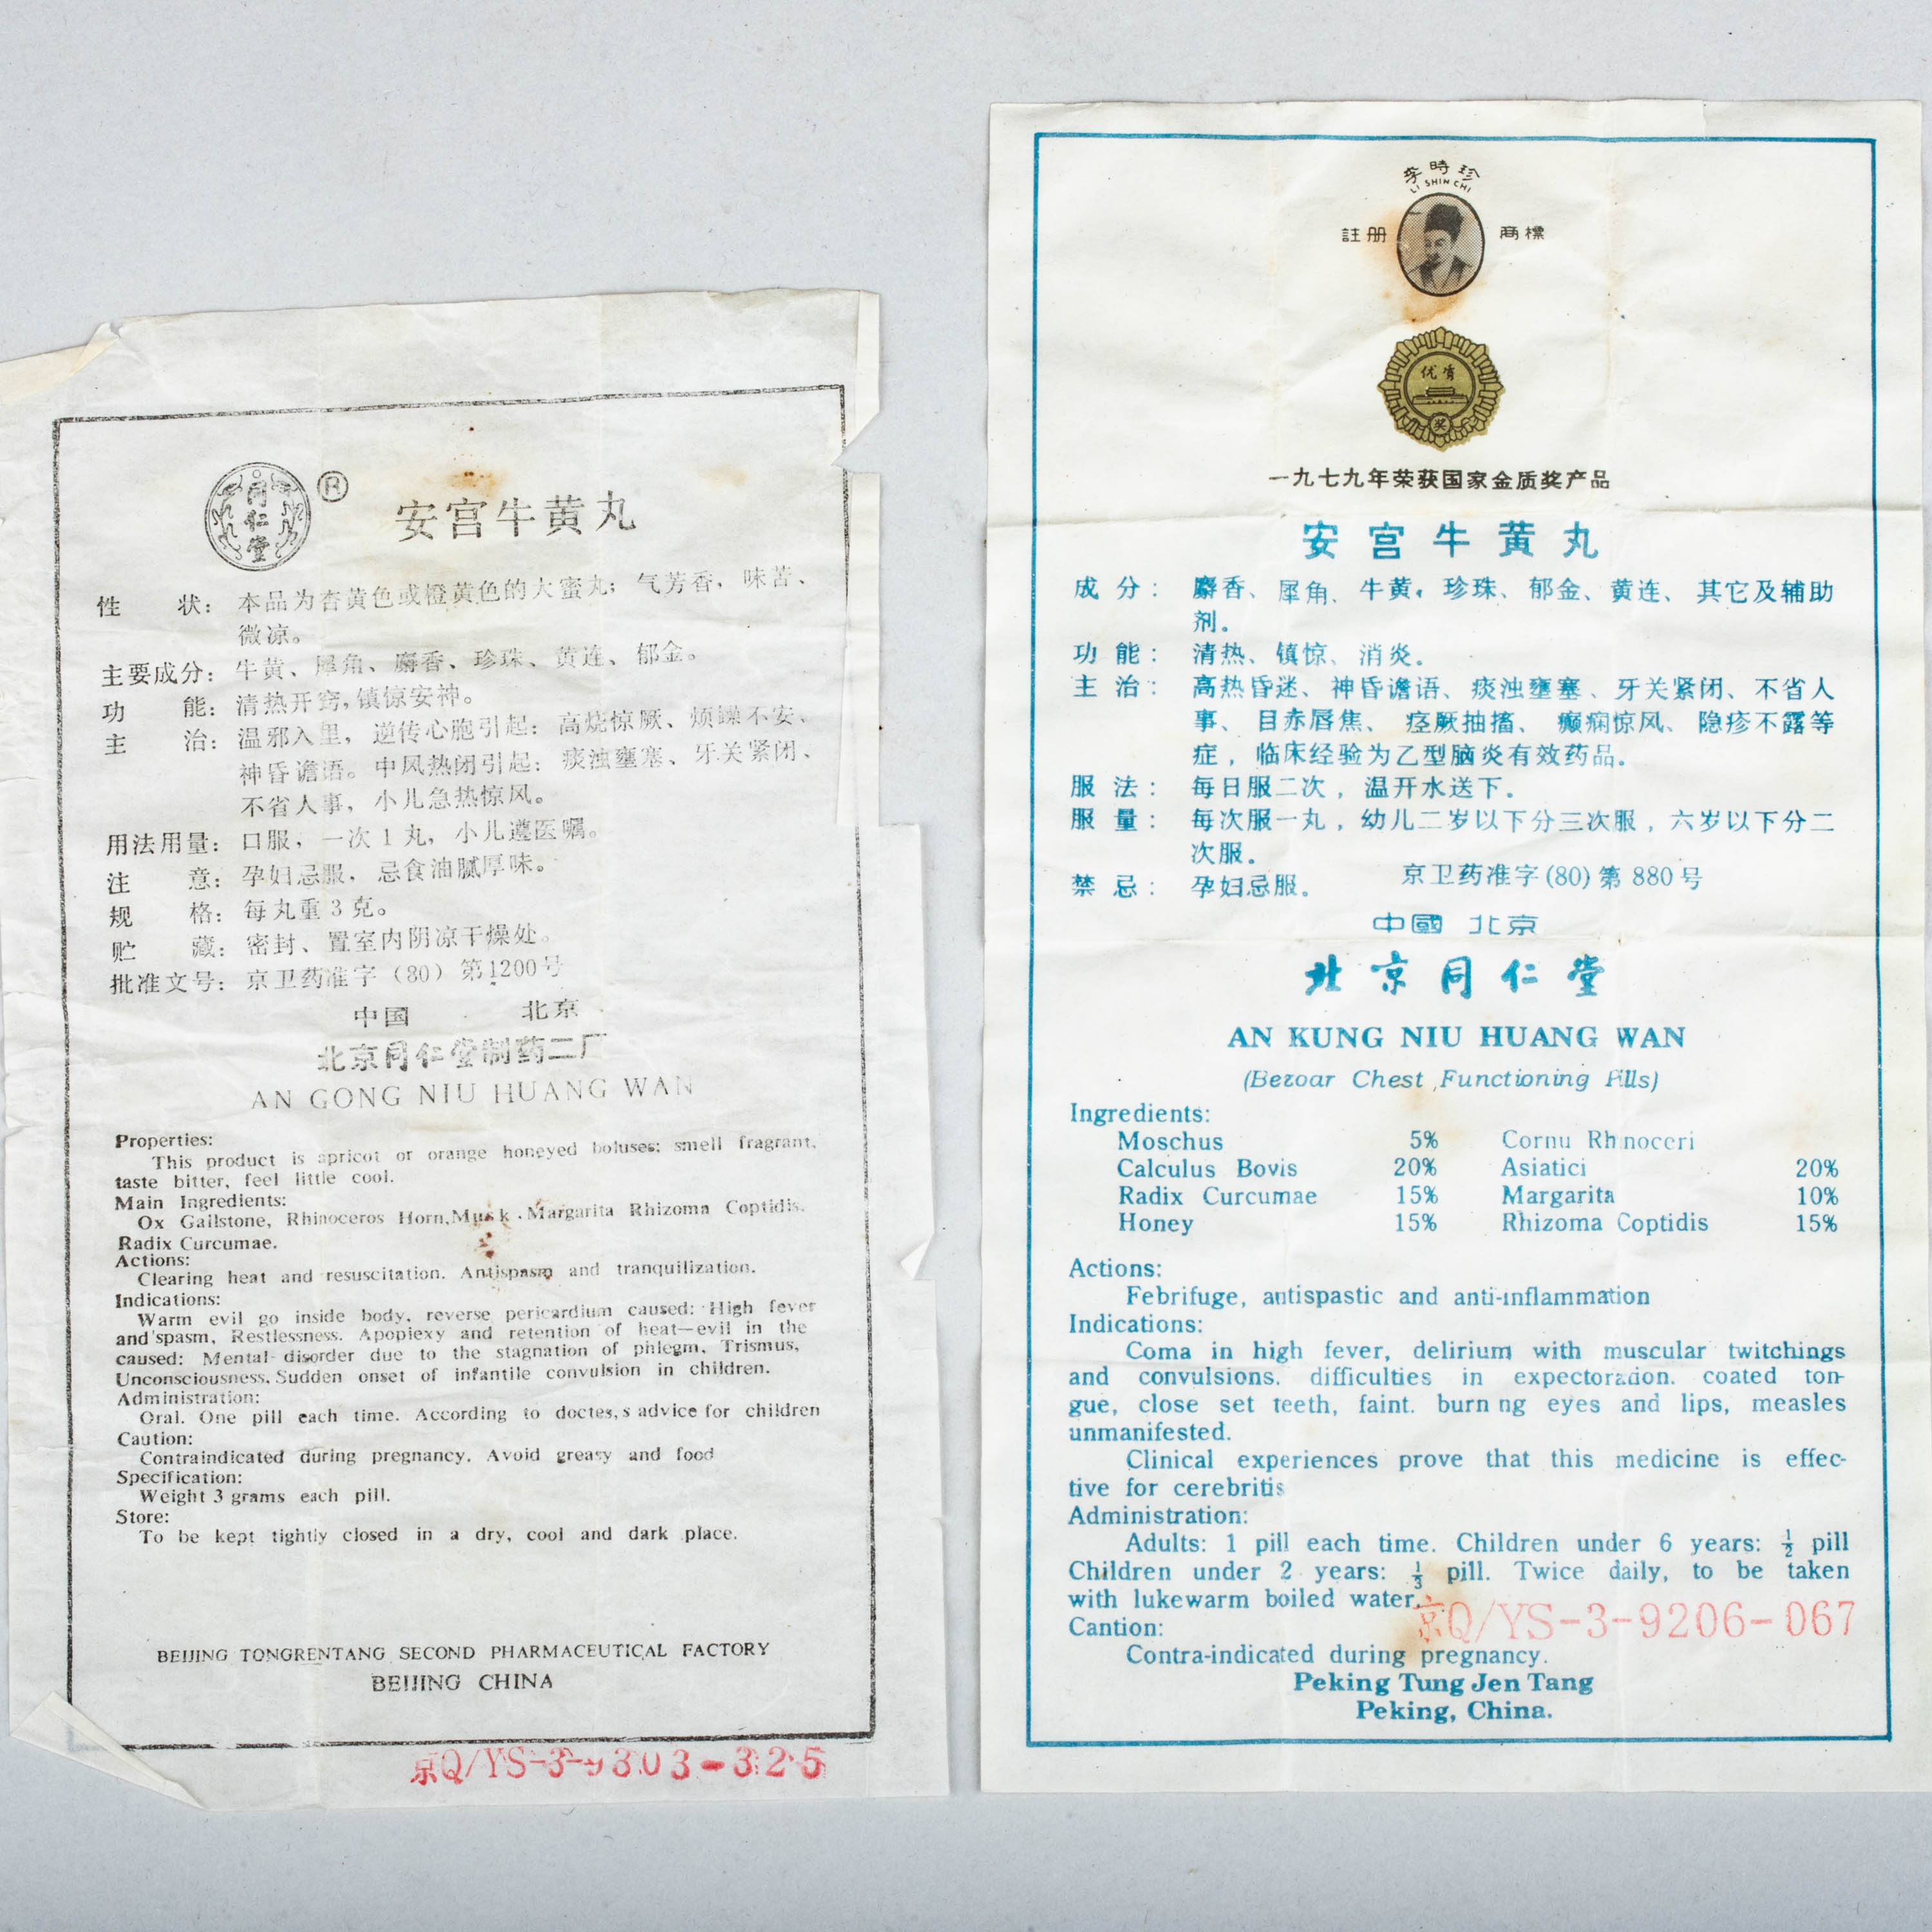 同仁堂
®
安宫牛黄丸
性 状： 本品为杏黄色或橙黄色的大蜜丸；气芳香，味苦、
微凉。
主要成分： 牛黄、犀角、麝香、珍珠、黄连、郁金。
功 能： 清热开窍，镇惊安神。
主 治： 温邪入里，逆传心胞引起：高烧惊厥、烦躁不安、
神昏谵语。中风热闭引起：痰浊壅塞、牙关紧闭、
不省人事，小儿急热惊风。
用法用量： 口服，一次1丸，小儿遵医嘱。
注 意： 孕妇忌服，忌食油腻厚味。
规 格： 每丸重3克。
贮 藏： 密封、置室内阴凉干燥处。
批准文号： 京卫药准字（80）第1200号
中国 北京
北京同仁堂制药二厂
AN GONG NIU HUANG WAN
Properties:
This product is apricot or orange honeyed boluses; smell fragrant,
taste bitter, feel little cool.
Main Ingredients:
Ox Gallstone, Rhinoceros Horn, Musk, Margarita Rhizoma Coptidis.
Radix Curcumae.
Actions:
Clearing heat and resuscitation. Antispasm and tranquilization.
Indications:
Warm evil go inside body, reverse pericardium caused: High fever
and spasm, Restlessness. Apoplexy and retention of heat—evil in the
caused: Mental disorder due to the stagnation of phlegm, Trismus,
Unconsciousness, Sudden onset of infantile convulsion in children.
Administration:
Oral. One pill each time. According to doctes,s advice for children
Caution:
Contraindicated during pregnancy. Avoid greasy and food
Specification:
Weight 3 grams each pill.
Store:
To be kept tightly closed in a dry, cool and dark place.
BEIJING TONGRENTANG SECOND PHARMACEUTICAL FACTORY
BEIJING CHINA
京Q/YS-3-9303-325
李時珍
LI SHIN CHI
註册 商標
优质
奖
一九七九年荣获国家金质奖产品
安宫牛黄丸
成分： 麝香、犀角、牛黄，珍珠、郁金、黄连、其它及辅助
剂。
功能： 清热、镇惊、消炎。
主治： 高热昏迷、神昏谵语、痰浊壅塞、牙关紧闭、不省人
事、目赤唇焦、痉厥抽搐、癫痫惊风、隐疹不露等
症，临床经验为乙型脑炎有效药品。
服法： 每日服二次，温开水送下。
服量： 每次服一丸，幼儿二岁以下分三次服，六岁以下分二
次服。
禁忌： 孕妇忌服。 京卫药准字(80)第880号
中國 北京
北京同仁堂
AN KUNG NIU HUANG WAN
(Bezoar Chest Functioning Pills)
Ingredients:
Moschus 5% Cornu Rhinoceri
Calculus Bovis 20% Asiatici 20%
Radix Curcumae 15% Margarita 10%
Honey 15% Rhizoma Coptidis 15%
Actions:
Febrifuge, antispastic and anti-inflammation
Indications:
Coma in high fever, delirium with muscular twitchings
and convulsions. difficulties in expectoration. coated ton-
gue, close set teeth, faint. burning eyes and lips, measles
unmanifested.
Clinical experiences prove that this medicine is effec-
tive for cerebritis
Administration:
Adults: 1 pill each time. Children under 6 years: ½ pill
Children under 2 years: ⅓ pill. Twice daily, to be taken
with lukewarm boiled water.
京Q/YS-3-9206-067
Cantion:
Contra-indicated during pregnancy.
Peking Tung Jen Tang
Peking, China.